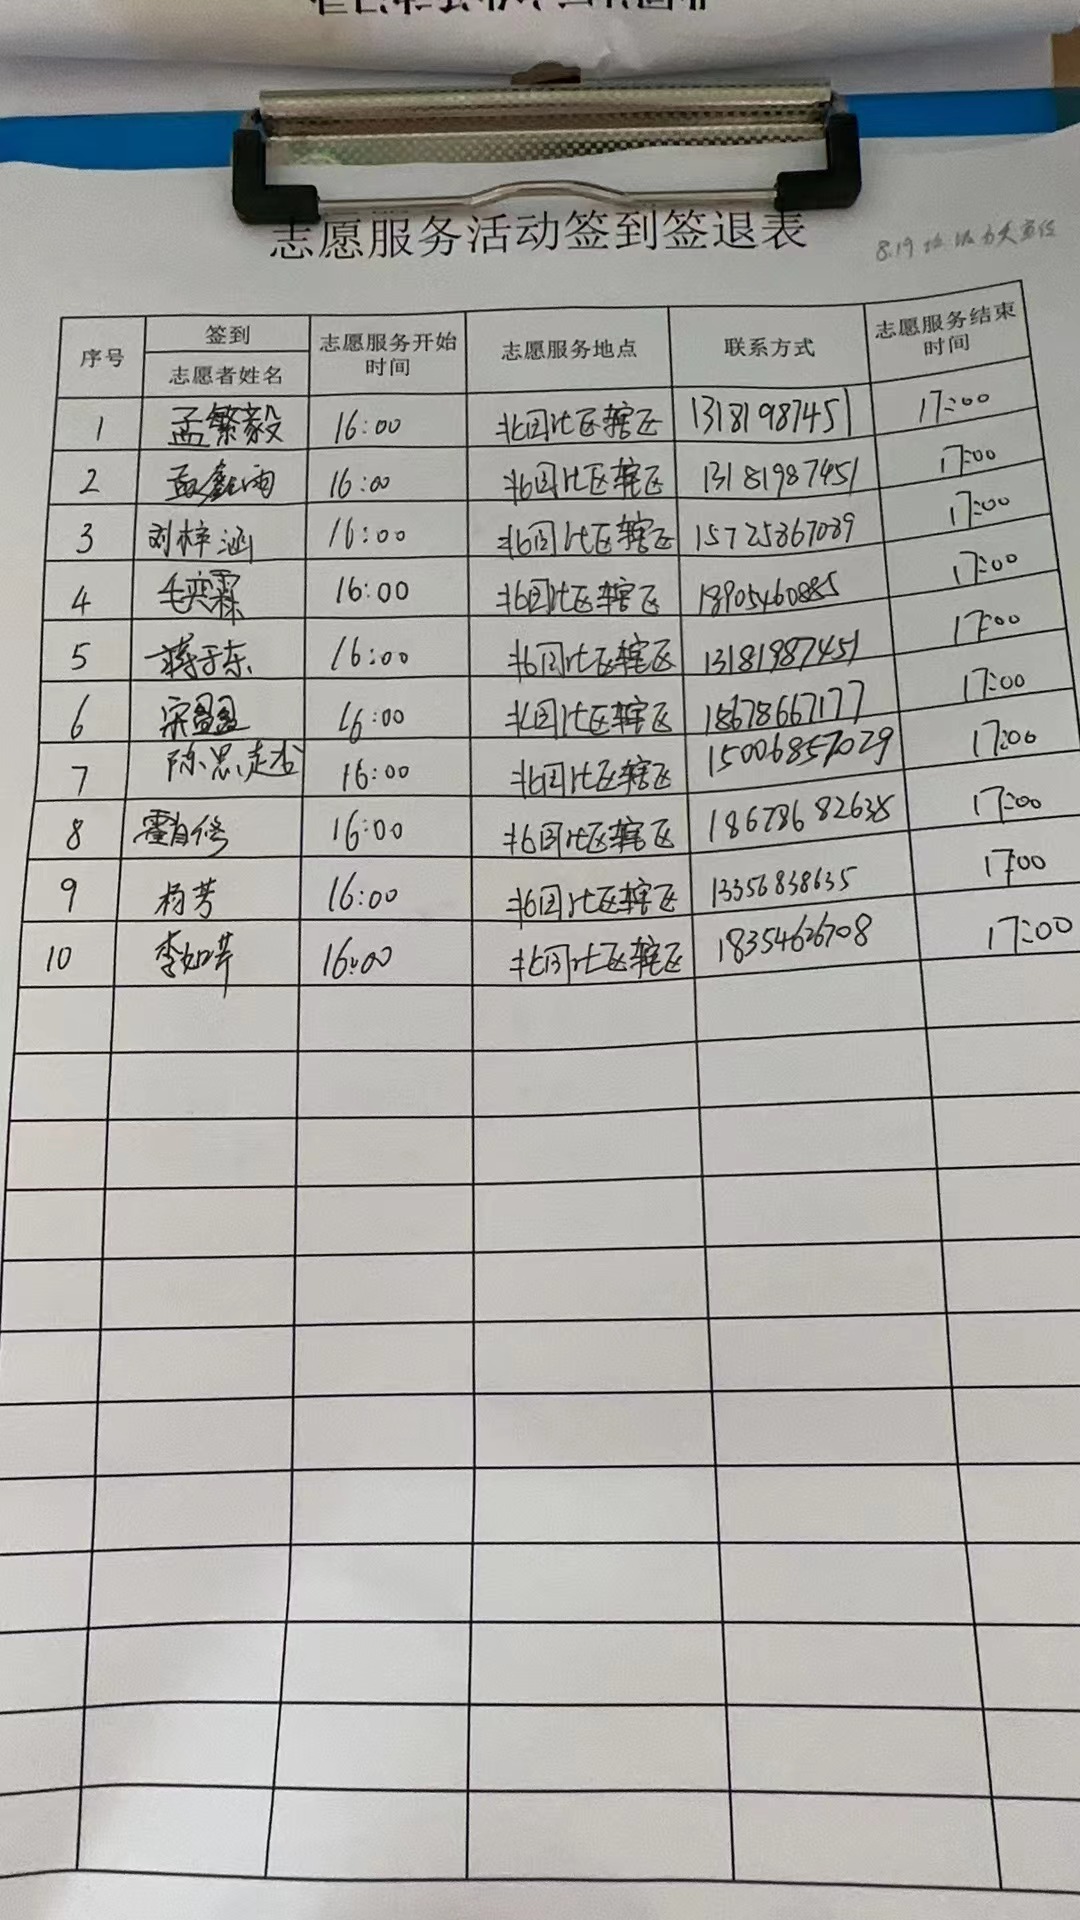 志愿服务活动签到签退表
8.19
序号 签到 志愿者姓名 志愿服务开始时间 志愿服务地点 联系方式 志愿服务结束时间
1 孟繁毅 16:00 北园社区辖区 13181987451 17:00
2 孟鑫雨 16:00 北园社区辖区 13181987451 17:00
3 刘梓涵 16:00 北园社区辖区 15725867089 17:00
4 毛奕霖 16:00 北园社区辖区 18905460885 17:00
5 蒋于东 16:00 北园社区辖区 13181987451 17:00
6 宋盈盈 16:00 北园社区辖区 18678667177 17:00
7 陈思 16:00 北园社区辖区 15006857029 17:00
8 霍自修 16:00 北园社区辖区 18678682638 17:00
9 杨芳 16:00 北园社区辖区 13356838635 1700
10 李如芹 16:00 北园社区辖区 18354626708 17:00